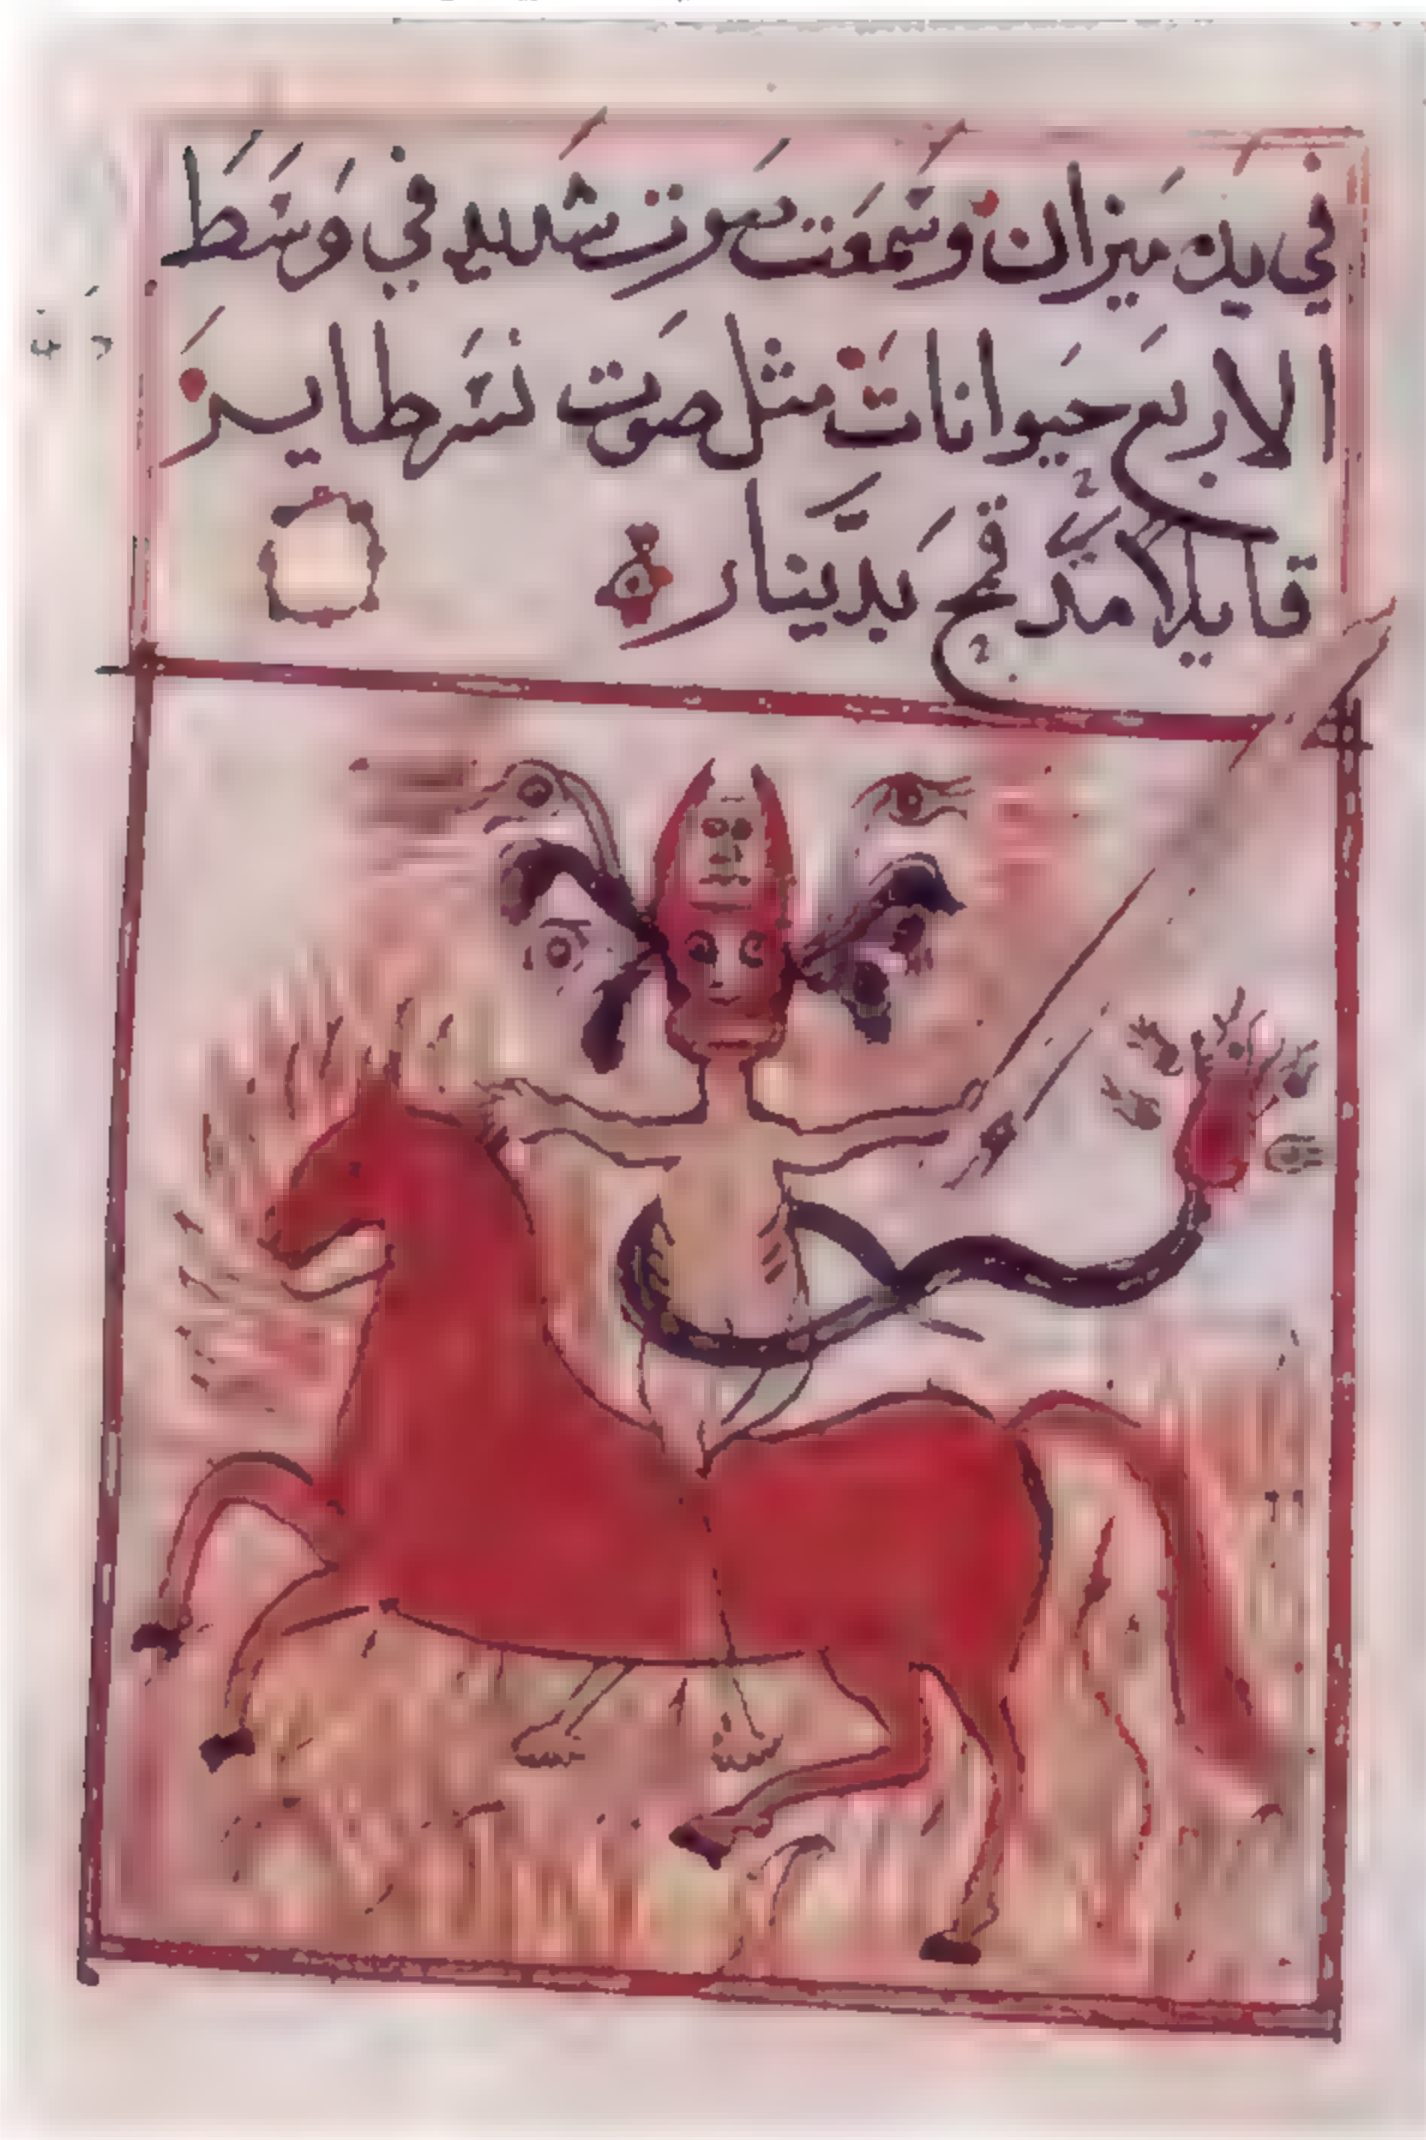 في يده ميزان وسَمعَت صَوت شَديد في وَسَطَ
الاربَع حَيوانات مثل صَوت نَسَر طايرَ
قايلا مدّ قمح بدّينار